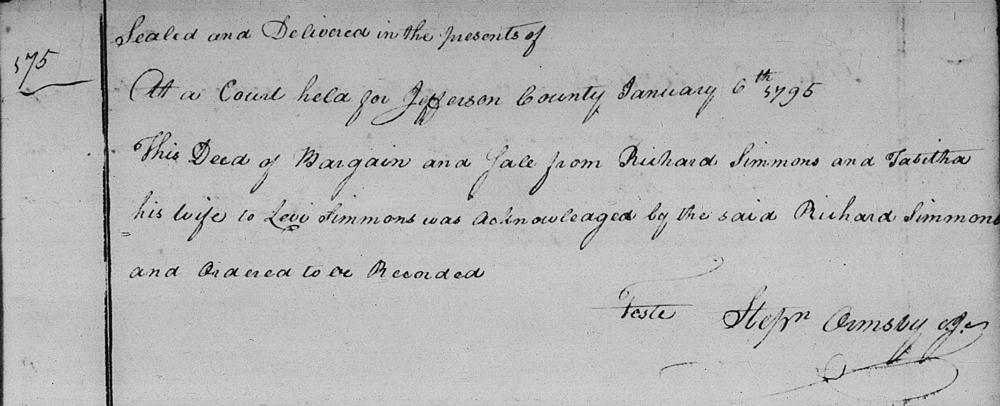 Sealed and Delivered in the presents of
175
At a Court held for Jefferson County January 6th 1795
This Deed of Bargain and Sale from Richard Simmons and Tabitha
his wife to Levi Simmons was acknowleaged by the said Richard Simmons
and Ordered to be Recorded
Teste Stepn Ormsby